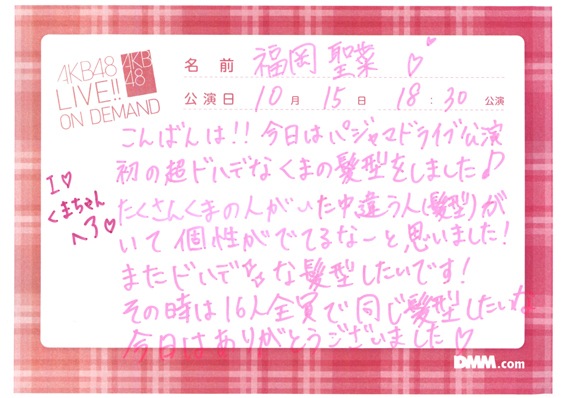 AKB48
LIVE!!
ON DEMAND
AKB
48
名前 福岡 聖菜 ♡
公演日 10月 15日 18:30 公演
こんばんは!! 今日はパジャマドライブ公演
初の超ドハデなくまの髪型をしました♪
たくさんくまの人がいた中違う人(髪型)が
いて個性がでてるなーと思いました!
またドハデな髪型したいです!
その時は16人全員で同じ髪型したいな
今日はありがとうございました♡
I♡
くまちゃん
ヘア♡
DMM.com